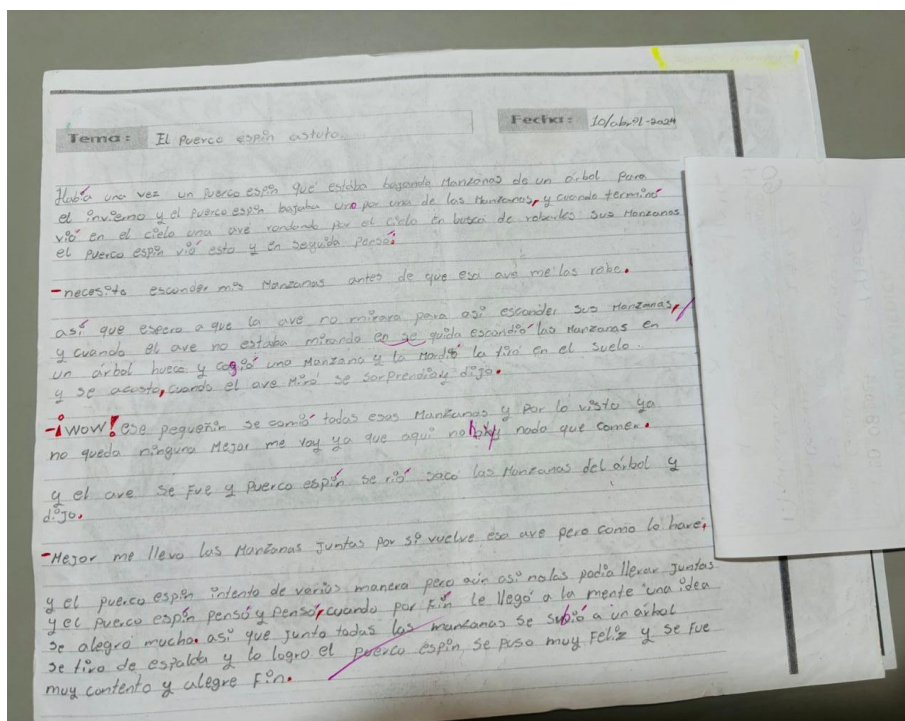 Tema: El puerco espín astuto.
Fecha: 10/abril-2024
Había una vez un Puerco espín que estaba bajando Manzanas de un árbol Para
el invierno y el puerco espín bajaba una por una de las Manzanas, y cuando terminó
vió en el cielo una ave rondando por el cielo en busca de robarles sus Manzanas
el Puerco espín vió esto y en seguida pensó:
-necesito esconder mis Manzanas antes de que esa ave me las robe.
así que espero a que la ave no mirara para así esconder sus Manzanas,
y cuando el ave no estaba mirando en se guida escondió las Manzanas en
un árbol hueco y cogió una Manzana y la Mordió la tiró en el suelo.
y se acosto, cuando el ave Miró se sorprendio y dijo.
-¡WOW! ese pequeñin se comió todas esas Manzanas y Por lo visto ya
no queda ninguna Mejor me voy ya que aquí no hay nada que comer.
y el ave se fue y Puerco espín se rió sacó las Manzanas del árbol y
dijo.
-Mejor me llevo las Manzanas Juntas Por si vuelve esa ave pero como lo haré,
y el puerco espín intento de varias manera pero aún así no las podía llevar Juntas
y el Puerco espín pensó y pensó, cuando por Fín le llegó a la mente una idea
se alegro mucho. así que Junto todas las manzanas se subió a un árbol
se tiro de espalda y lo logro el puerco espín se puso muy Feliz y se fue
muy contento y alegre Fin.